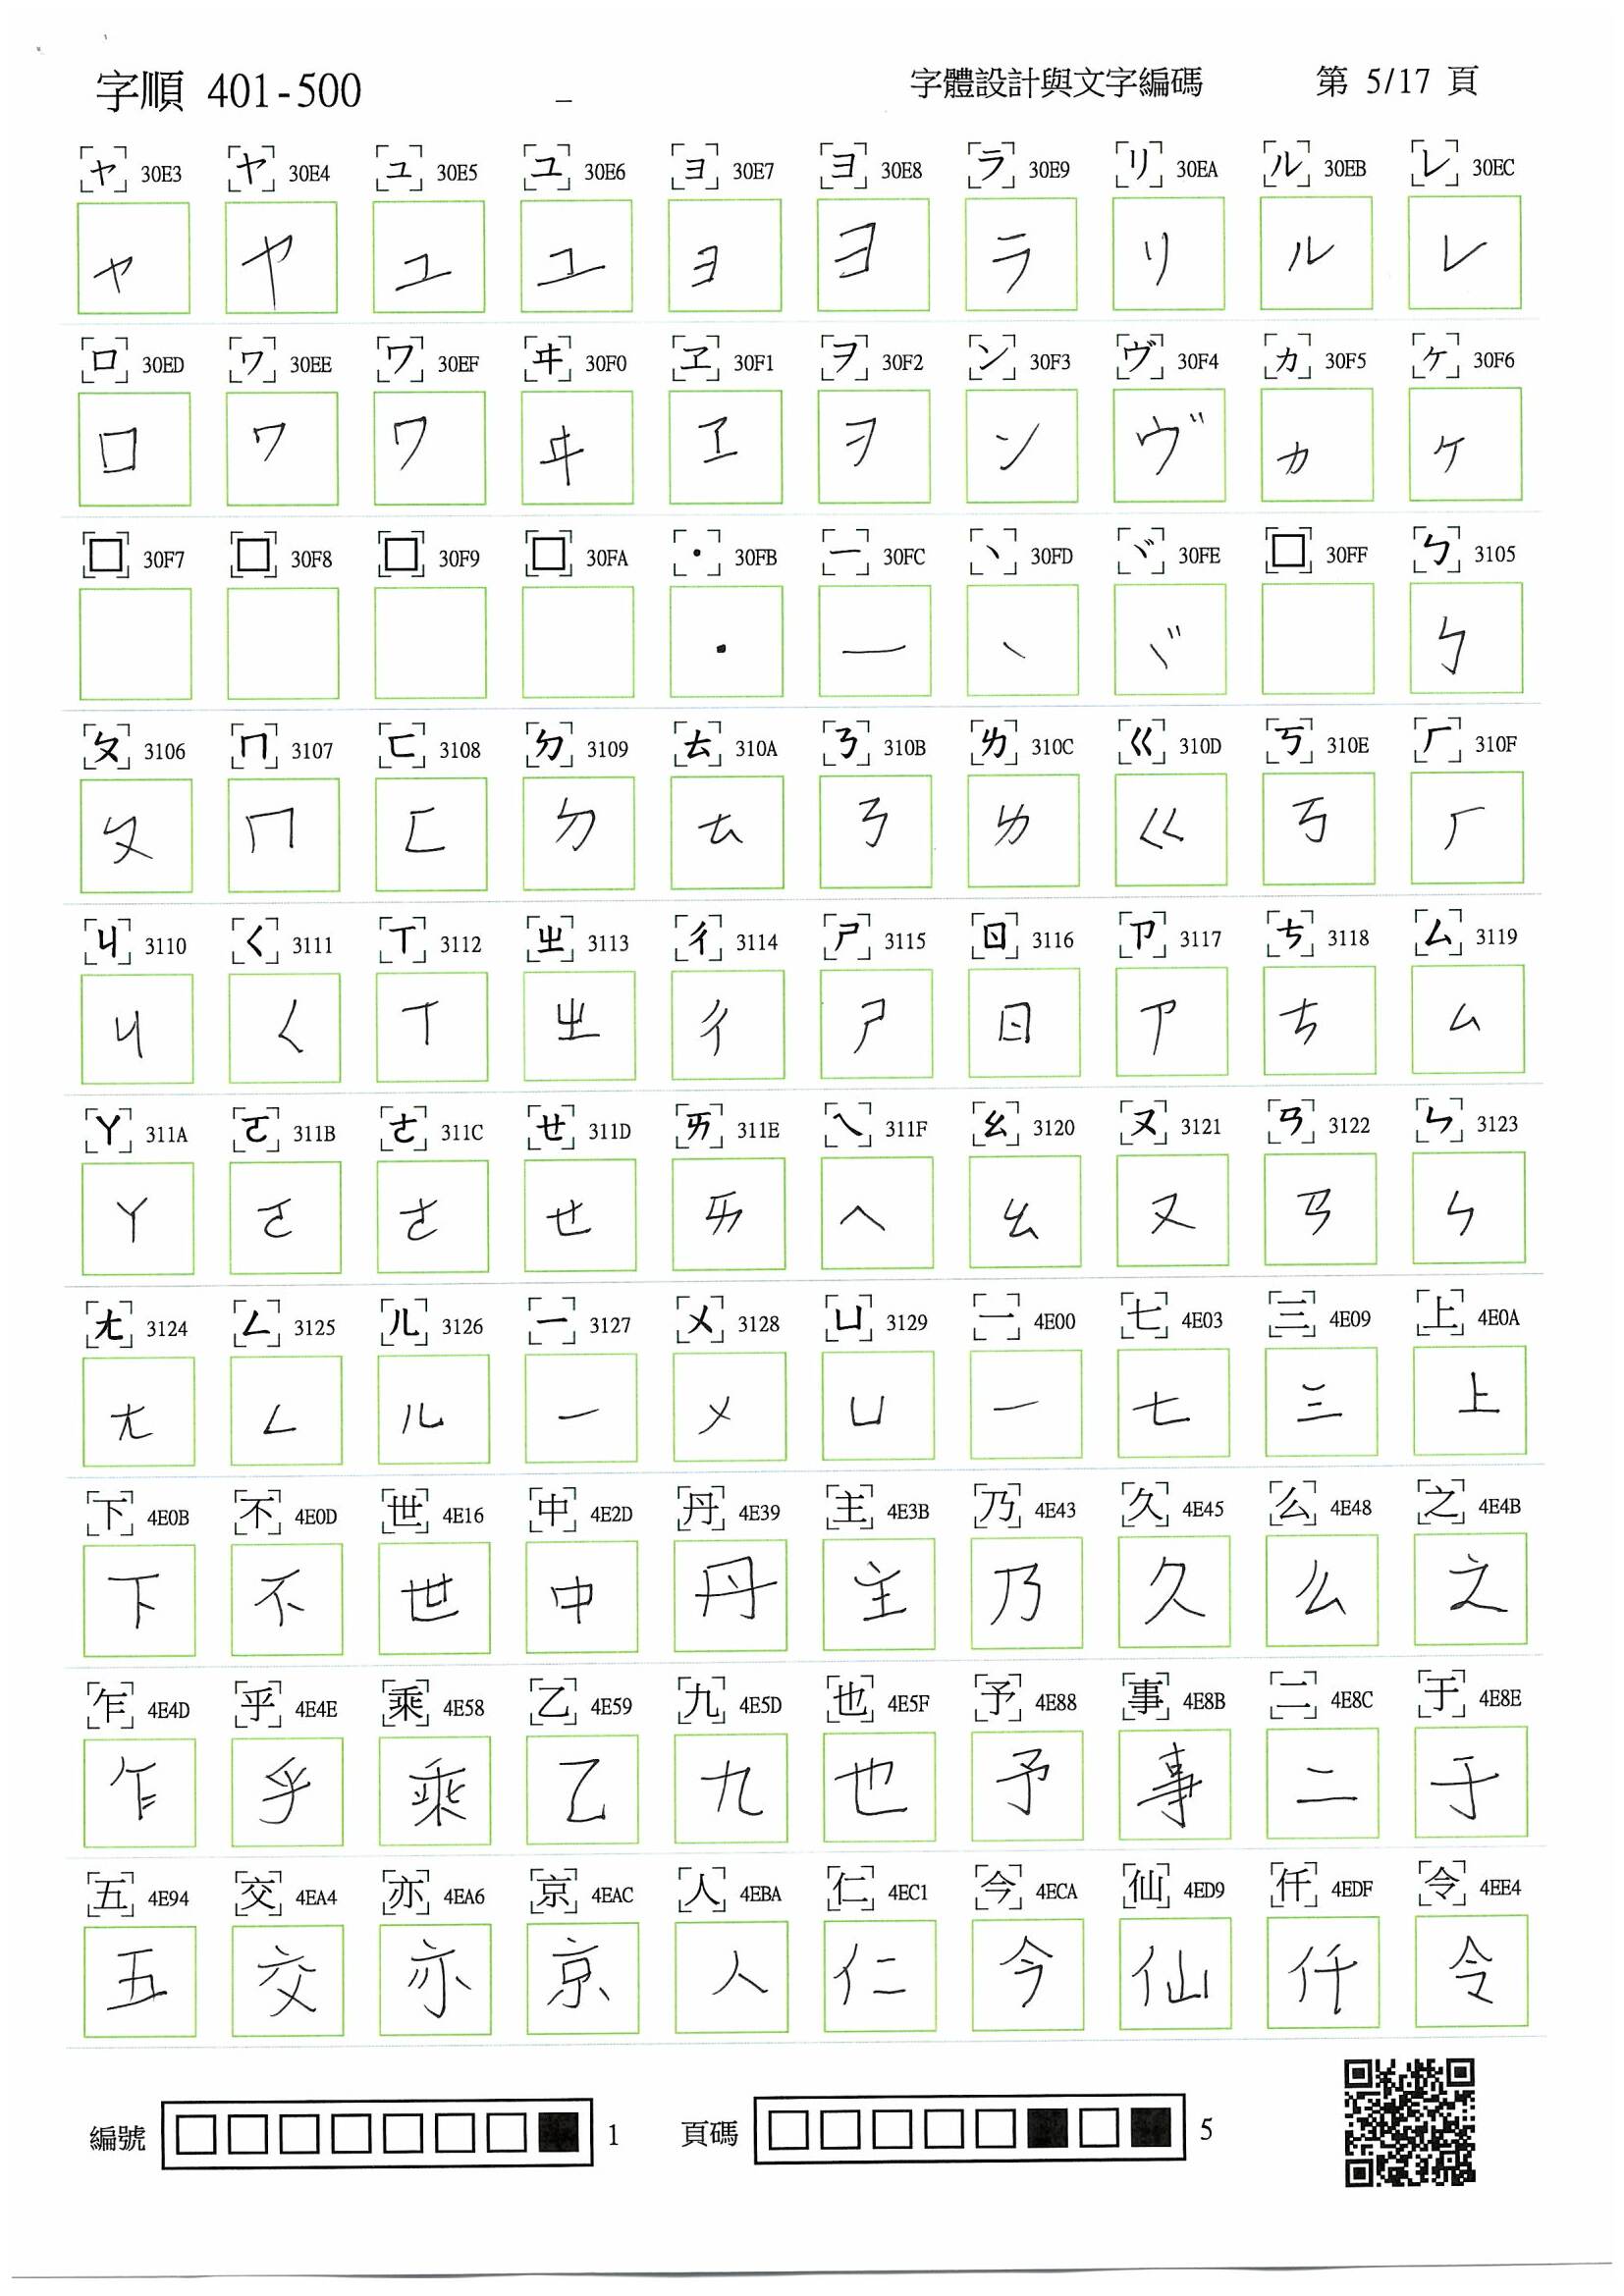 字順 401-500 — 字體設計與文字編碼 第 5/17 頁
ャ 30E3 ヤ 30E4 ュ 30E5 ユ 30E6 ョ 30E7 ヨ 30E8 ラ 30E9 リ 30EA ル 30EB レ 30EC
ャ ヤ ュ ユ ョ ヨ ラ リ ル レ
ロ 30ED ヮ 30EE ワ 30EF ヰ 30F0 ヱ 30F1 ヲ 30F2 ン 30F3 ヴ 30F4 ヵ 30F5 ヶ 30F6
ロ ヮ ワ ヰ ヱ ヲ ン ヴ ヵ ヶ
□ 30F7 □ 30F8 □ 30F9 □ 30FA ・ 30FB ー 30FC ヽ 30FD ヾ 30FE □ 30FF ㄅ 3105
・ ー ヽ ヾ ㄅ
ㄆ 3106 ㄇ 3107 ㄈ 3108 ㄉ 3109 ㄊ 310A ㄋ 310B ㄌ 310C ㄍ 310D ㄎ 310E ㄏ 310F
ㄆ ㄇ ㄈ ㄉ ㄊ ㄋ ㄌ ㄍ ㄎ ㄏ
ㄐ 3110 ㄑ 3111 ㄒ 3112 ㄓ 3113 ㄔ 3114 ㄕ 3115 ㄖ 3116 ㄗ 3117 ㄘ 3118 ㄙ 3119
ㄐ ㄑ ㄒ ㄓ ㄔ ㄕ ㄖ ㄗ ㄘ ㄙ
ㄚ 311A ㄛ 311B ㄜ 311C ㄝ 311D ㄞ 311E ㄟ 311F ㄠ 3120 ㄡ 3121 ㄢ 3122 ㄣ 3123
ㄚ ㄛ ㄜ ㄝ ㄞ ㄟ ㄠ ㄡ ㄢ ㄣ
ㄤ 3124 ㄥ 3125 ㄦ 3126 ㄧ 3127 ㄨ 3128 ㄩ 3129 一 4E00 七 4E03 三 4E09 上 4E0A
ㄤ ㄥ ㄦ ㄧ ㄨ ㄩ 一 七 三 上
下 4E0B 不 4E0D 世 4E16 中 4E2D 丹 4E39 主 4E3B 乃 4E43 久 4E45 么 4E48 之 4E4B
下 不 世 中 丹 主 乃 久 么 之
乍 4E4D 乎 4E4E 乘 4E58 乙 4E59 九 4E5D 也 4E5F 予 4E88 事 4E8B 二 4E8C 于 4E8E
乍 乎 乘 乙 九 也 予 事 二 于
五 4E94 交 4EA4 亦 4EA6 京 4EAC 人 4EBA 仁 4EC1 今 4ECA 仙 4ED9 仟 4EDF 令 4EE4
五 交 亦 京 人 仁 今 仙 仟 令
編號 □□□□□□□■ 1 頁碼 □□□□□■□■ 5